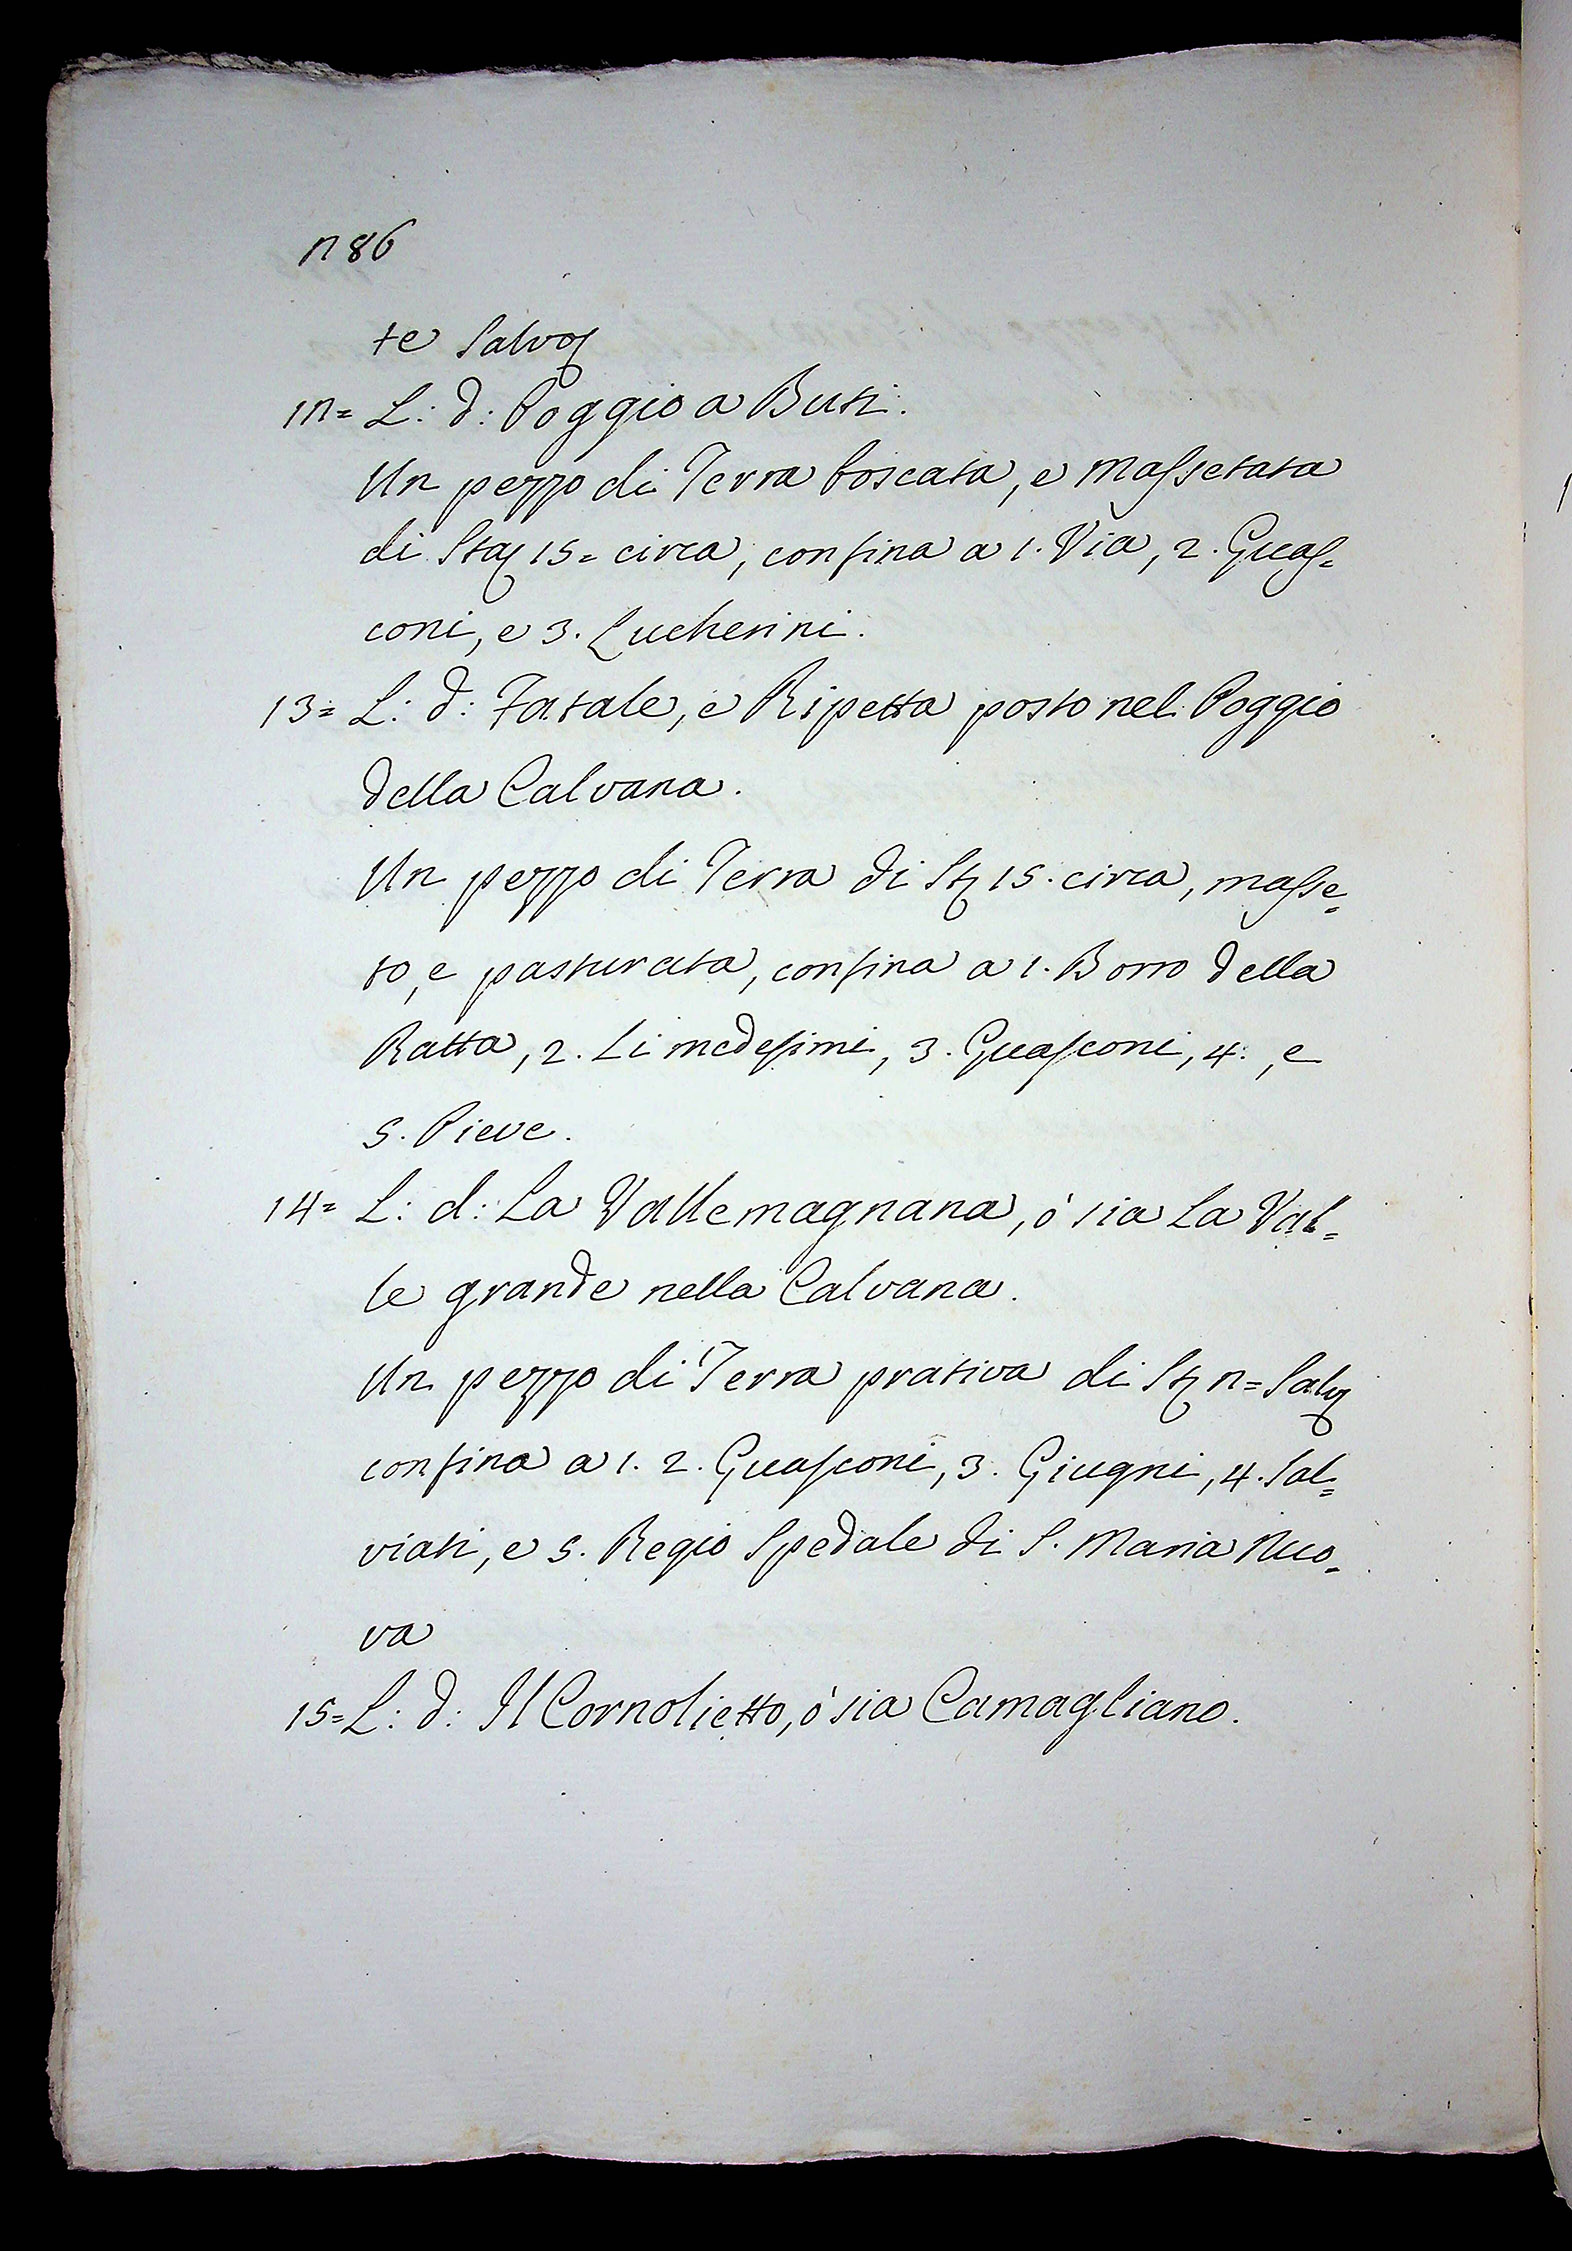 286
te Salvo
12= L: d: Poggio a Buti.
Un pezzo di Terra boscata, e massetata
di Sta 15= circa, confina a 1. Via, 2. Guas=
coni, e 3. Lucherini.
13= L: d: Fatale, e Ripetta posto nel Poggio
della Calvana.
Un pezzo di Terra di St 15. circa, masse=
to, e pasturata, confina a 1. Borro della
Ratta, 2. Li medesimi, 3. Guasconi, 4., e
5. Pieve.
14= L: d: La Vallemagnana, ò sia La Val=
le grande nella Calvana.
Un pezzo di Terra prativa di St 2= Salv
confina a 1. 2. Guasconi, 3. Giugni, 4. Sal=
viati, e 5. Regio Spedale di S. Maria Nuo=
va
15= L: d: Il Cornolietto, ò sia Camagliano.